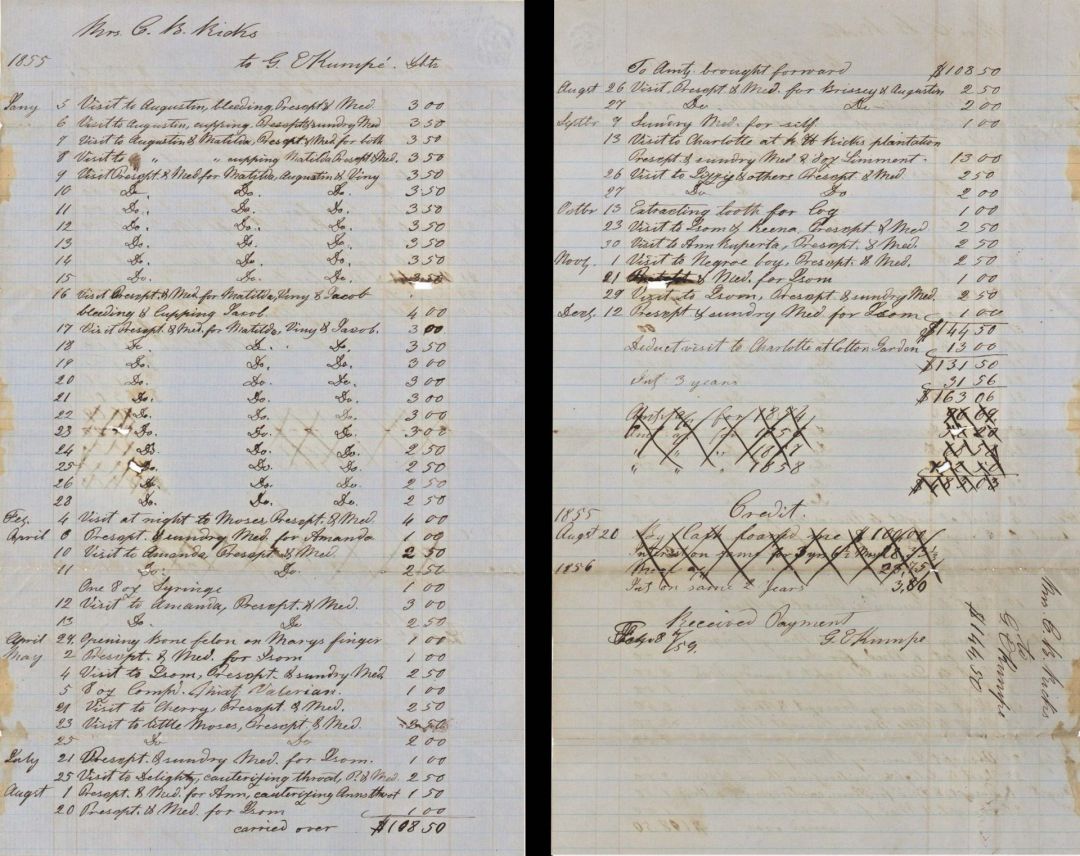 Mrs. C. B. Ricks
1855 to G. E Kumpé. Dbtr
Jany 5 Visit to Augustin, bleeding, Presept & Med. 3 00
6 Visit to Augustin, cupping, Presept & sundry Med 3 50
7 Visit to Augustin & Matilda, Presept & Med for both 3 50
8 Visit to " " cupping Matilda Presept & Med. 3 50
9 Visit Presept. & Med for Matilda, Augustin & Viny 3 50
10 Do. Do. Do. 3 50
11 Do. Do. Do. 3 50
12 Do. Do. Do. 3 50
13 Do. Do. Do. 3 50
14 Do. Do. Do. 3 50
15 Do. Do. Do. 3 50
16 Visit Presept. & Med for Matilda, Viny & Jacob
bleeding & Cupping Jacob 4 00
17 Visit Presept. & Med. for Matilda, Viny & Jacob. 3 00
18 Do. Do. Do. 3 50
19 Do. Do. Do. 3 00
20 Do. Do. Do. 3 00
21 Do. Do. Do. 3 00
22 Do. Do. Do. 3 00
23 Do. Do. Do. 3 00
24 Do. Do. Do. 2 50
25 Do. Do. Do. 2 50
26 Do. Do. Do. 2 50
28 Do. Do. Do. 2 50
Feb. 4 Visit at night to Moses, Presept. & Med. 4 00
April 8 Presept. & sundry Med. for Amanda 1 00
10 Visit to Amanda, Presept & Med. 2 50
11 Do. Do. 2 50
One 8 oz Syringe 1 00
12 Visit to Amanda, Presept. & Med. 3 00
13 Do. Do. 2 50
April 24. Opening Bone felon on Marys finger 1 00
May 2 Presept. & Med. for Isom 1 00
4 Visit to Isom, Presept. & sundry Med 2 50
5 8 oz Comp. Mixt Valerian. 1 00
21 Visit to Cherry, Presept. & Med. 2 50
23 Visit to little Moses, Presept. & Med. 2 50
25 Do Do 2 00
July 21 Presept. & sundry Med. for Isom. 1 00
25 Visit to Delight, cauterizing throat, P. & Med. 2 50
Augst 1 Presept. & Med. for Ann, cauterizing Anns throat 1 50
20 Presept. & Med. for Isom 1 00
carried over $108 50
To Amt. brought forward $108 50
Augst 26 Visit, Presept. & Med. for Brissey & Augustin 2 50
27 Do Do. 2 00
Septbr 7 Sundry Med. for self 1 00
13 Visit to Charlotte at Ricks plantation
Presept & sundry Med & 8 oz Linment. 13 00
26 Visit to & others Presept. & Med 2 50
27 Do Do 2 00
Octbr 13 Extracting tooth for Coy 1 00
23 Visit to Isom & Keena, Presept. & Med 2 50
30 Visit to Ann Ruperta, Presept. & Med. 2 50
Novb. 1 Visit to Negroe boy, Presept. & Med. 2 50
21 & Med. for Isom 1 00
29 Visit to Isom, Presept & sundry Med. 2 50
Decb. 12 Presept & sundry Med for Isom 1 00
$144 50
Deduct visit to Charlotte at Cotton Garden 13 00
$131 50
Int. 3 years 31 56
$163 06
Amt for 1854
" " " 1858
Credit.
1855
Augst 20 By Cash loaned me $100,00
1856
Int on same 2 years 3,80
Received Payment
Feb. 8 /59. G E Kumpe
Mrs C. B. Ricks
To
G E Kumpe
$144 50